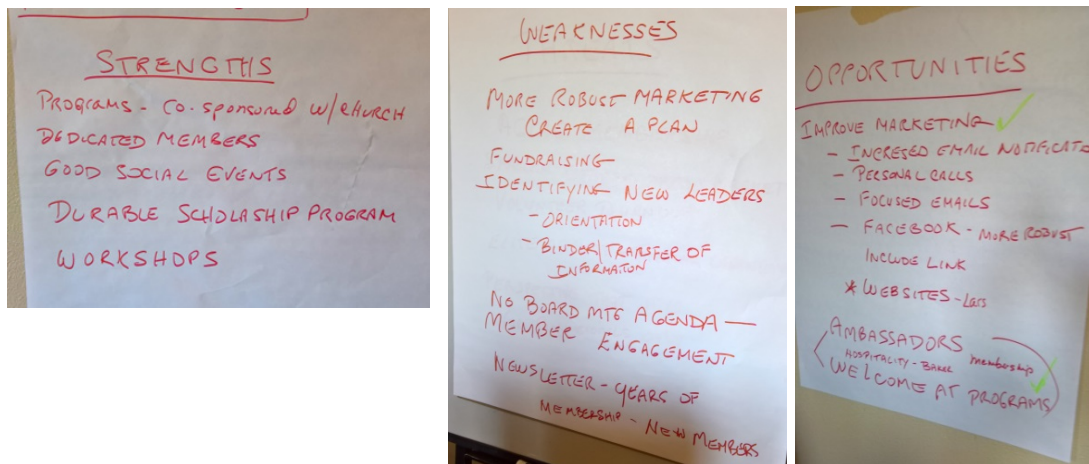 STRENGTHS
PROGRAMS - CO-SPONSORED W/CHURCH
DEDICATED MEMBERS
GOOD SOCIAL EVENTS
DURABLE SCHOLASHIP PROGRAM
WORKSHOPS
WEAKNESSES
MORE ROBUST MARKETING
CREATE A PLAN
FUNDRAISING
IDENTIFYING NEW LEADERS
- ORIENTATION
- BINDER/TRANSFER OF
INFORMATON
NO BOARD MTG AGENDA —
MEMBER ENGAGEMENT
NEWSLETTER - YEARS OF
MEMBERSHIP - NEW MEMBERS
OPPORTUNITIES
IMPROVE MARKETING ✓
- INCRESED EMAIL NOTIFICATIO
- PERSONAL CALLS
- FOCUSED EMAILS
- FACEBOOK - MORE ROBUST
INCLUDE LINK
* WEBSITES - Lars
AMBASSADORS
HOSPITALITY - membership
WELCOME AT PROGRAMS ✓